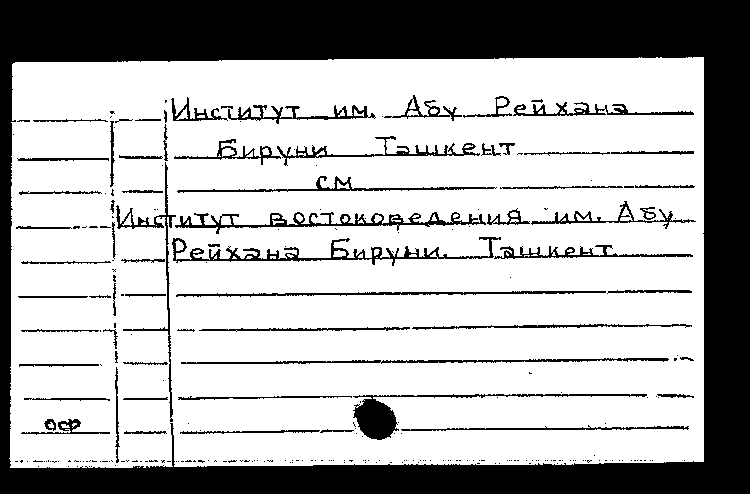 Институт им. Абу Рейхана
Бируни Ташкент
см
Институт востоковедения им. Абу
Рейхана Бируни. Ташкент.
оср